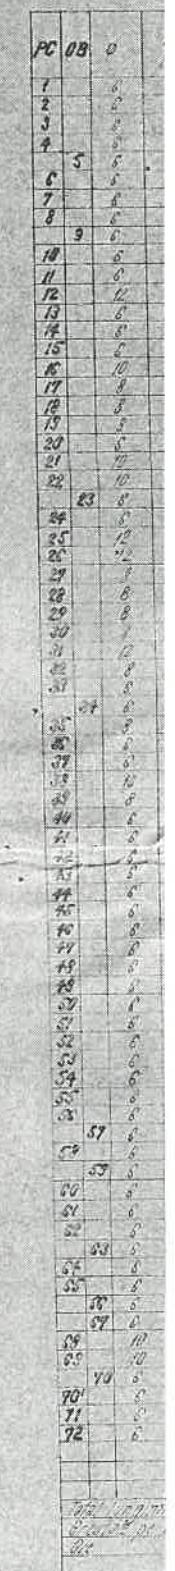 PC OB O
1 6
2 6
3 6
4 6
5 6
6 6
7 6
8 6
9 6
10 6
11 6
12 12
13 6
14 6
15 6
16 10
17 8
18 8
19 8
20 6
21 10
22 10
23 6
24 6
25 12
26 12
27
28 8
29 8
30
31 12
32 8
33 8
34 6
35 8
36 6
37 6
38 10
39 8
40 6
41 6
42 6
43 6
44 6
45 6
46 6
47 6
48 6
49 6
50 6
51 6
52 6
53 6
54 6
55 6
56 6
57 6
58 6
59 6
60 6
61 6
62 6
63 6
64 6
65 6
66 6
67 6
68 10
69 10
70 6
70' 6
71 6
72 6
Total